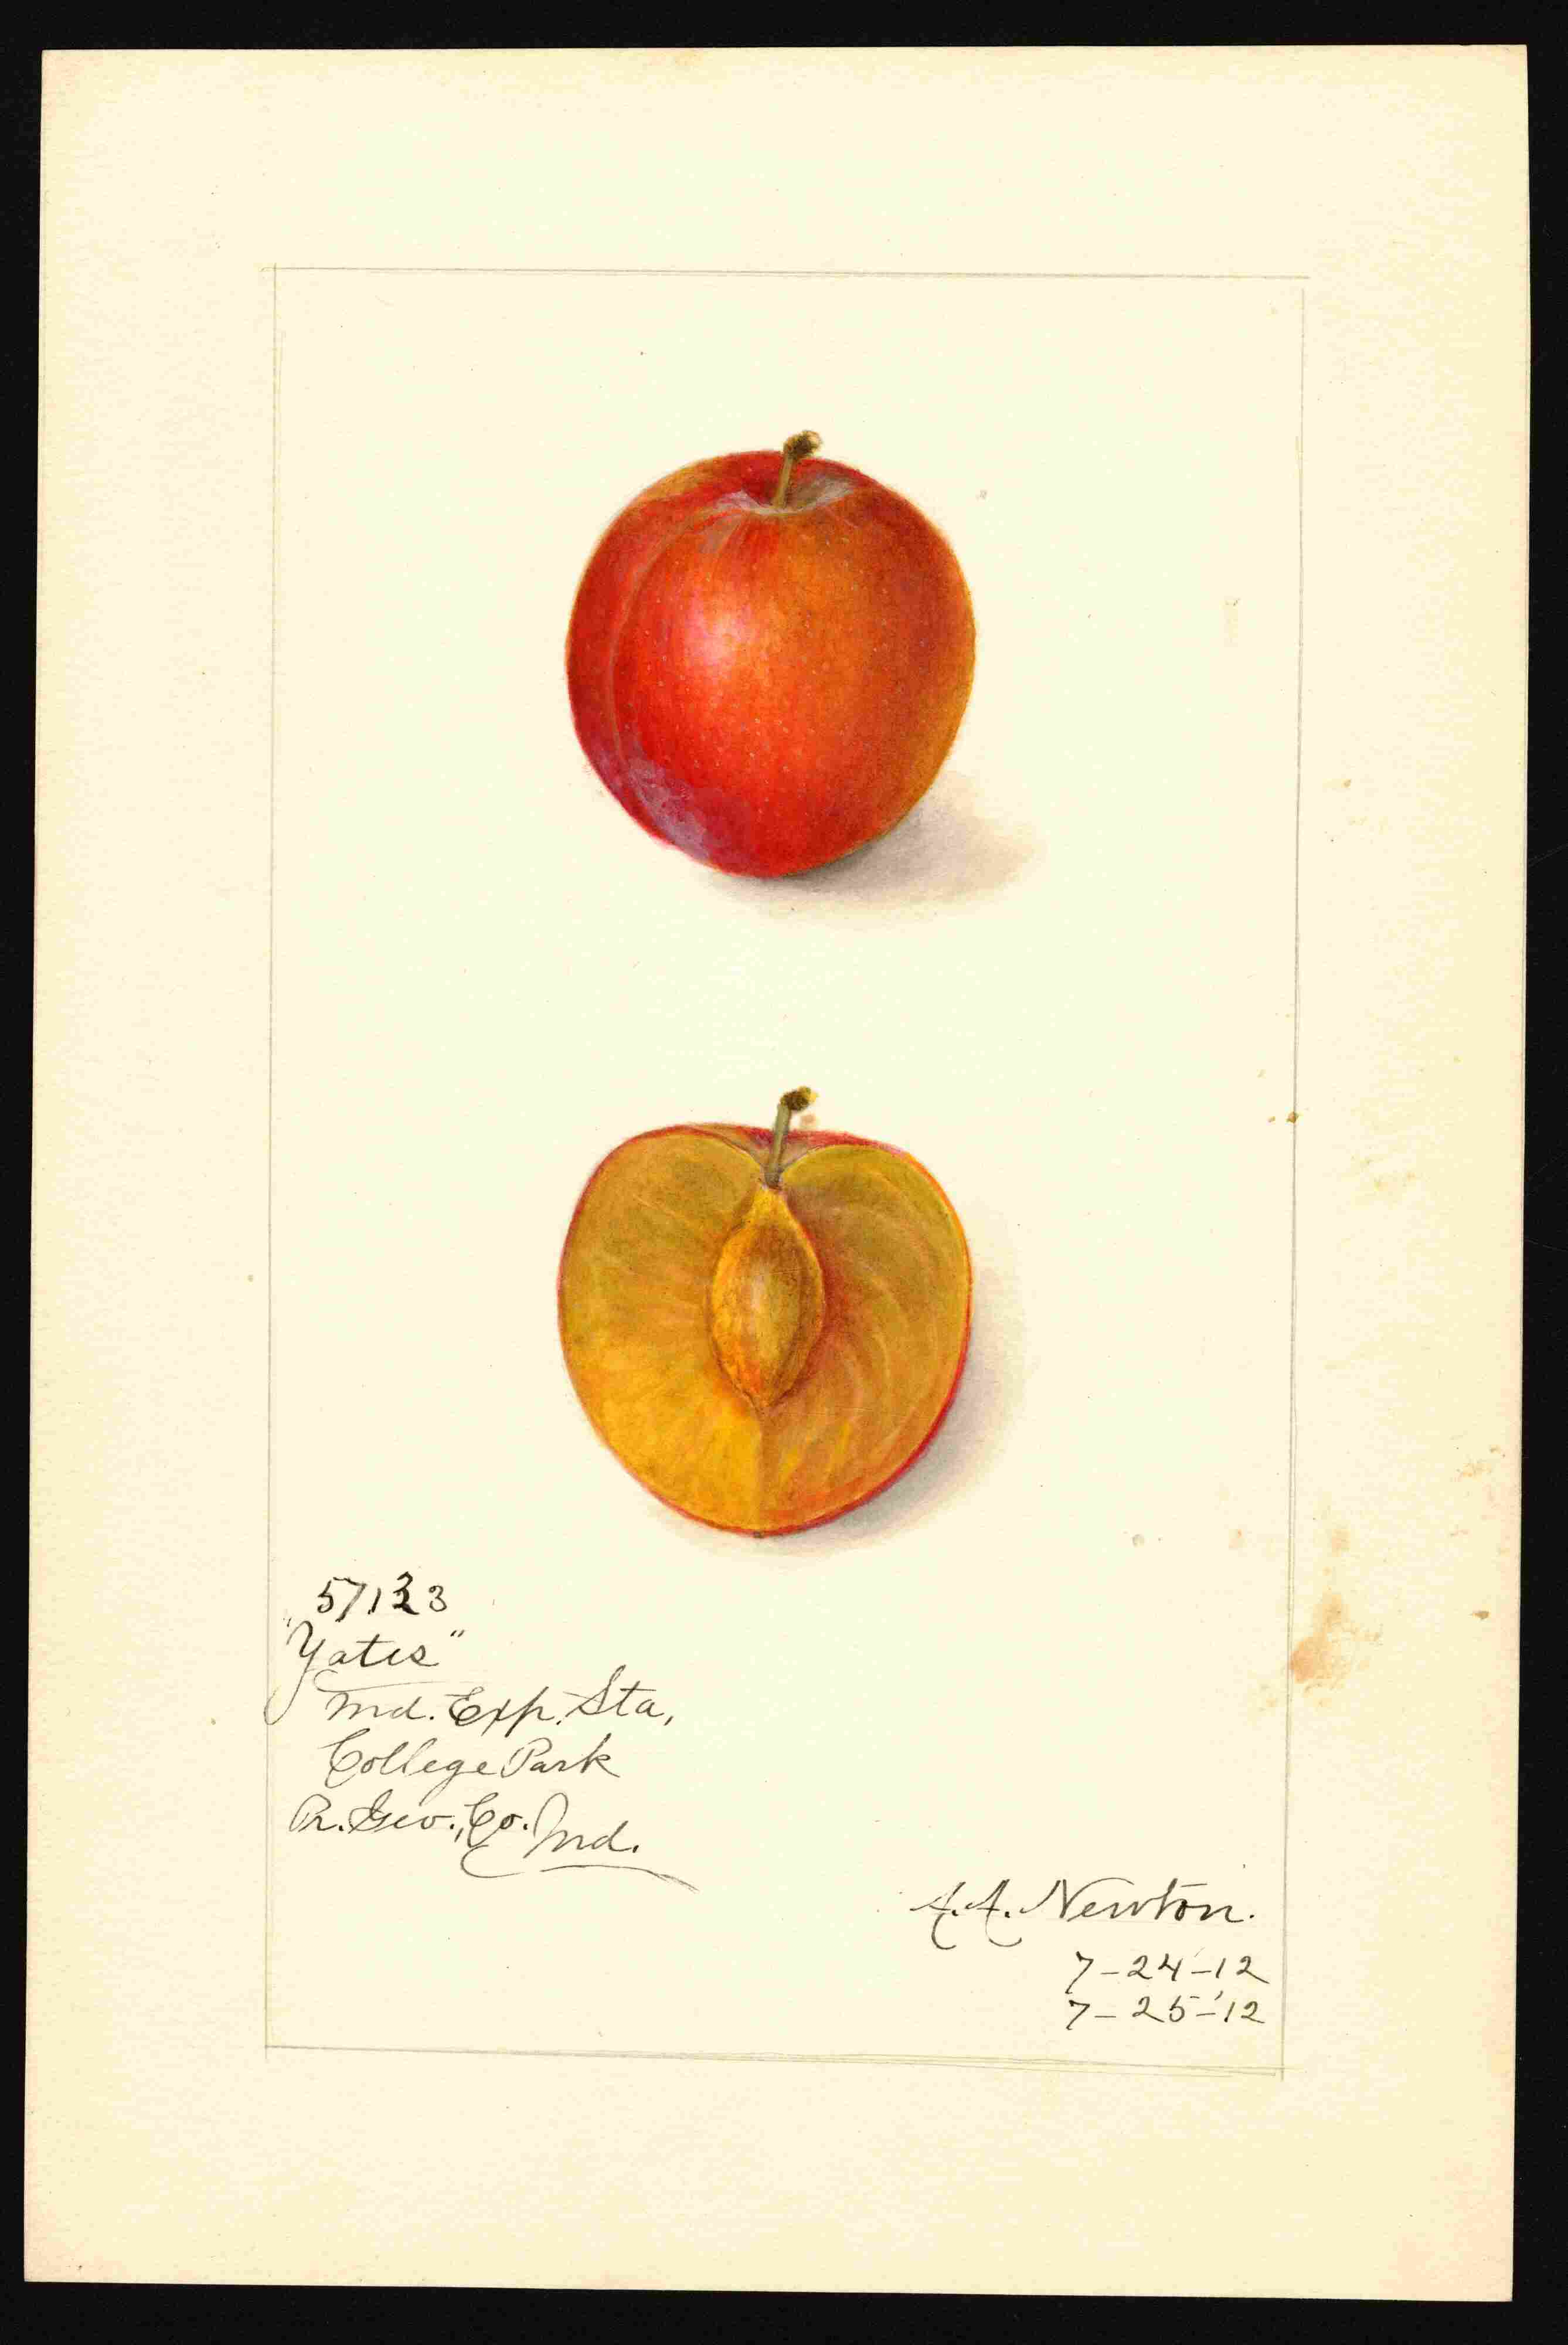 57133
"Yates"
Md. Exp. Sta,
College Park
Pr. Geo., Co. Md.
A.A. Newton.
7-24-12
7-25-12